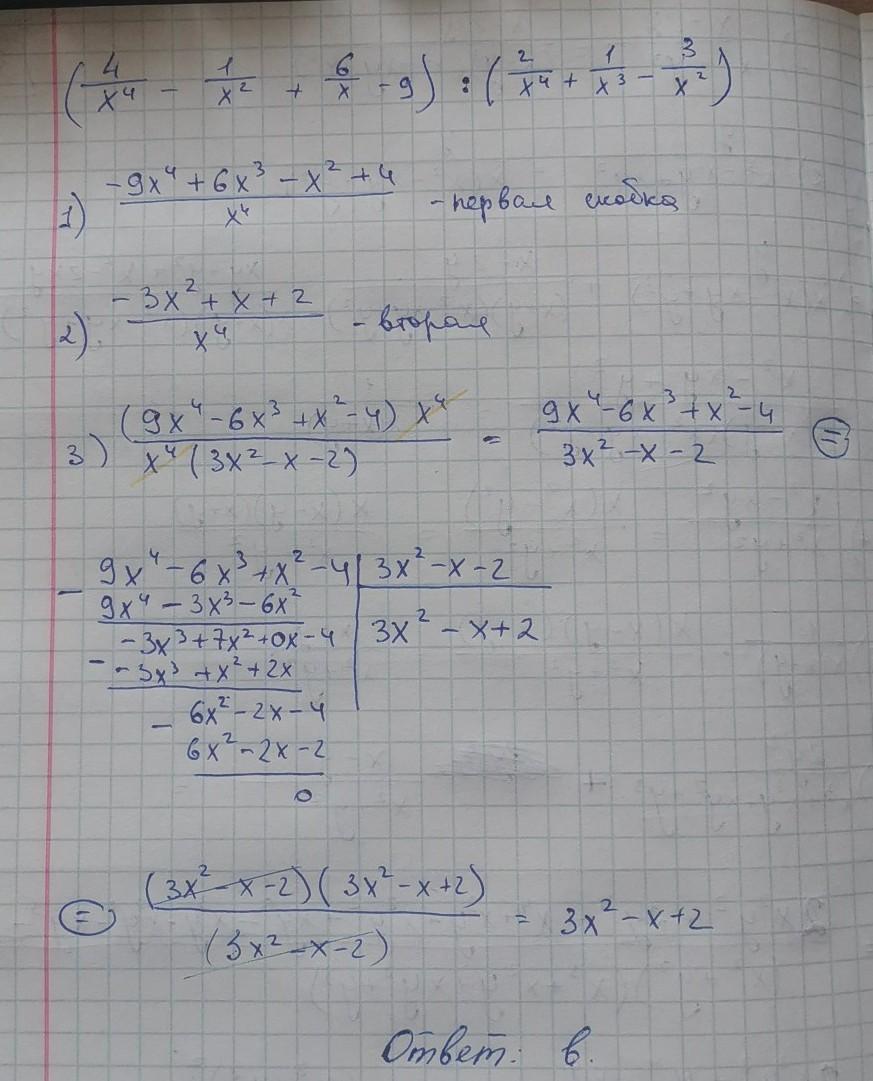 (4/x⁴ - 1/x² + 6/x - 9) : (2/x⁴ + 1/x³ - 3/x²)
1) (-9x⁴ + 6x³ - x² + 4)/x⁴ - первая скобка
2) (-3x² + x + 2)/x⁴ - вторая
3) (9x⁴ - 6x³ + x² - 4) x⁴ / x⁴ (3x² - x - 2) = (9x⁴ - 6x³ + x² - 4)/(3x² - x - 2) =
- 9x⁴ - 6x³ + x² - 4 | 3x² - x - 2
9x⁴ - 3x³ - 6x² | 3x² - x + 2
-3x³ + 7x² + 0x - 4
- -3x³ + x² + 2x
- 6x² - 2x - 4
6x² - 2x - 2
0
= (3x² - x - 2)(3x² - x + 2)/(3x² - x - 2) = 3x² - x + 2
Ответ: в.